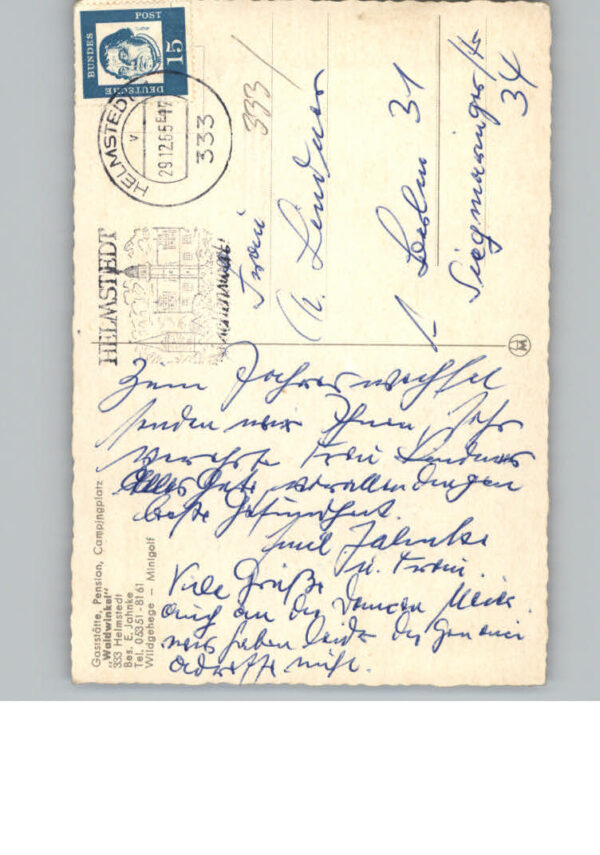 BUNDES
POST
DEUTSCHE
15
HELMSTEDT
29.12.65-17
333
HELMSTEDT
333
Frau
Lindner
1 Berlin 31
Siegmaringer
34
Zum Jahreswechsel
senden wir Ihnen, sehr
verehrte Frau Lindner
Alles Gute, vor allen dingen
beste Gesundheit.
Emil Jahnke
u. Frau.
Viele Grüße
auch an die Damen
wir haben leider die genaue
Adresse nicht.
Gaststätte, Pension, Campingplatz
"Waldwinkel"
333 Helmstedt
Bes. E. Jahnke
Tel. 05351-8161
Wildgehege — Minigolf